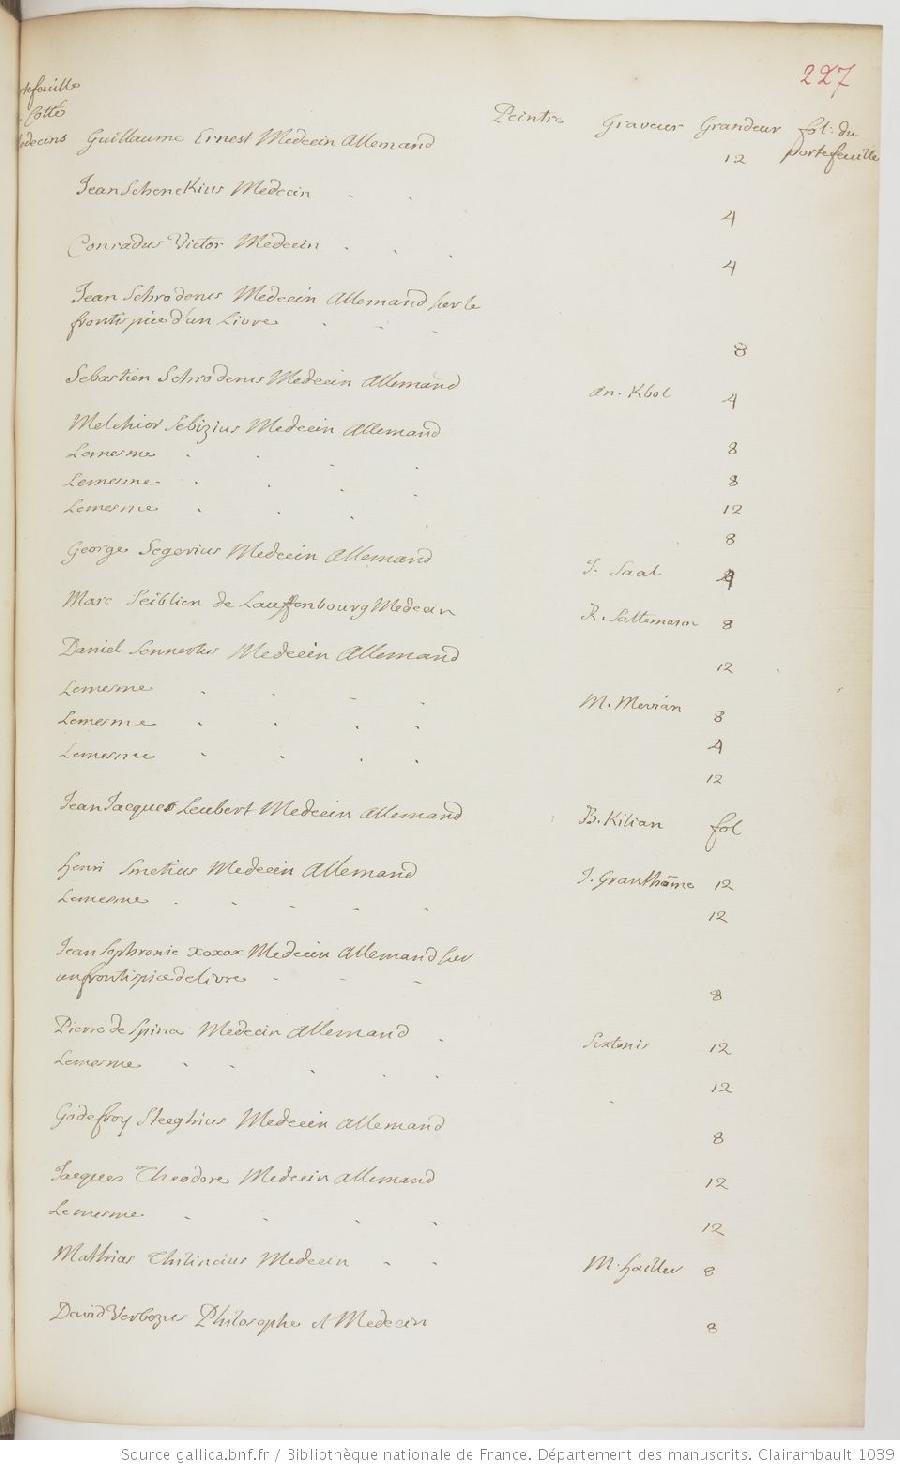 227
tefeuille
Cotté
edecins
Peintre Graveur Grandeur fol: du
portefeuille
Guillaume Ernest Medecin Allemand 12
Jean Schenckius Medecin 4
Conradus Victor Medecin 4
Jean Schroderus Medecin Allemand sur le
frontispice d'un Livre 8
Sebastien Schroderus Medecin Allemand an. Khol 4
Melchior Sebizius Medecin Allemand 8
Lememe 8
Lemesme 12
Lemesme 8
George Segerius Medecin Allemand J. Saal 4
Marc Seiblien de Lauffenbourg Medecin R. 8
Daniel Sennertus Medecin Allemand 12
Lemesme M. Merian 8
Lemesme 4
Lemesme 12
Jean Jacques Leubert Medecin Allemand B. Kilian fol
Henri Smetius Medecin Allemand J. Granthome 12
Lemesme 12
Jean Sophronie xoxox Medecin Allemand sur
un frontispice de livre 8
Pierre de Spina Medecin Allemand 12
Lemesme 12
Godefroy Steeghius Medecin Allemand 8
Jacques Theodore Medecin Allemand 12
Lemesme 12
Mathias Medecin M. 8
David Verbozius Philosophe et Medecin 8
Source gallica.bnf.fr / Bibliothèque nationale de France. Département des manuscrits. Clairambault 1039